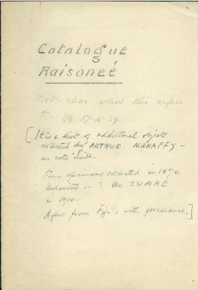 Catalogue
Raisoneé
Not clear what this refers
to.
[It is a list of additional objects
collected by ARTHUR MAHAFFY –
see note inside.
Some specimens collected in 1870
in ? the CUMAE
in
Apart from Fiji, with provenance.]